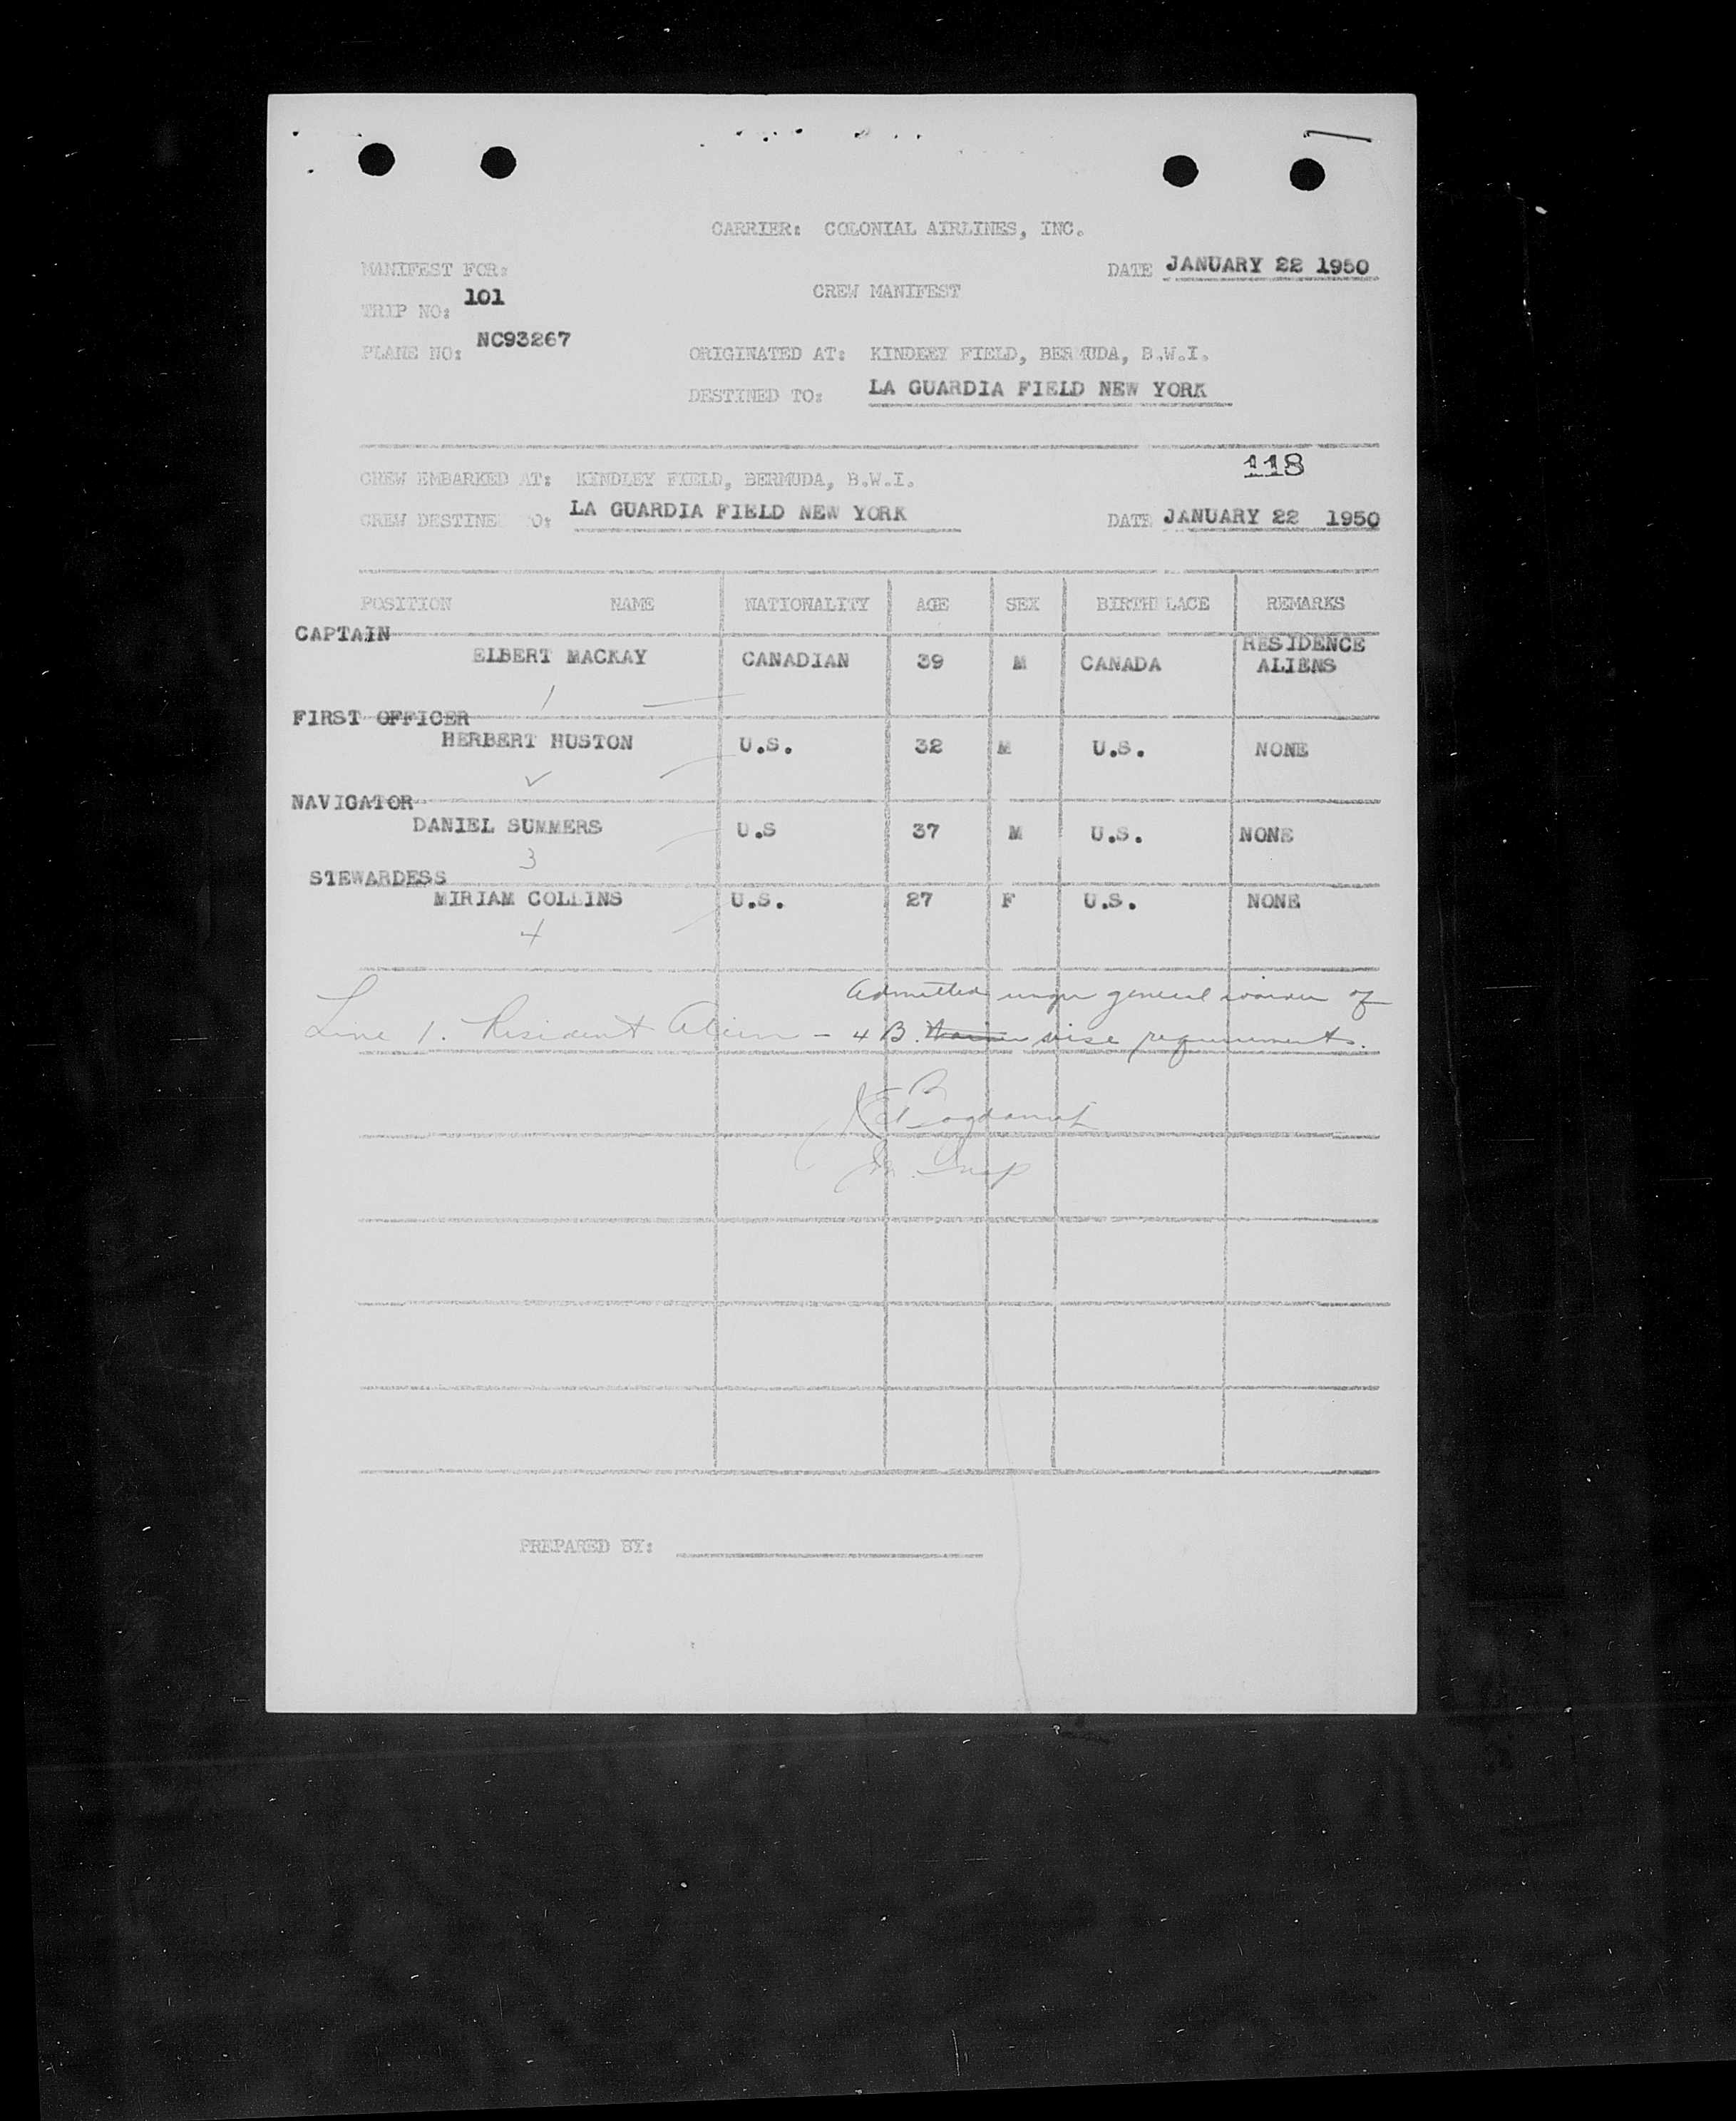 CARRIER: COLONIAL AIRLINES, INC.
MANIFEST FOR:
DATE JANUARY 22 1950
CREW MANIFEST
TRIP NO: 101
PLANE NO: NC93267
ORIGINATED AT: KINDLEY FIELD, BERMUDA, B.W.I.
DESTINED TO: LA GUARDIA FIELD NEW YORK
118
CREW EMBARKED AT: KINDLEY FIELD, BERMUDA, B.W.I.
CREW DESTINE O: LA GUARDIA FIELD NEW YORK DATE JANUARY 22 1950
POSITION NAME NATIONALITY AGE SEX BIRTH LACE REMARKS
CAPTAIN
ELBERT MACKAY CANADIAN 39 M CANADA RESIDENCE ALIENS
1
FIRST OFFICER
HERBERT HUSTON U.S. 32 M U.S. NONE
NAVIGATOR
DANIEL SUMMERS U.S 37 M U.S. NONE
3
STEWARDESS
MIRIAM COLLINS U.S. 27 F U.S. NONE
4
Admitted under general waiver of
Line 1. Resident Alien - 4 B. vise requirements.
PREPARED BY: